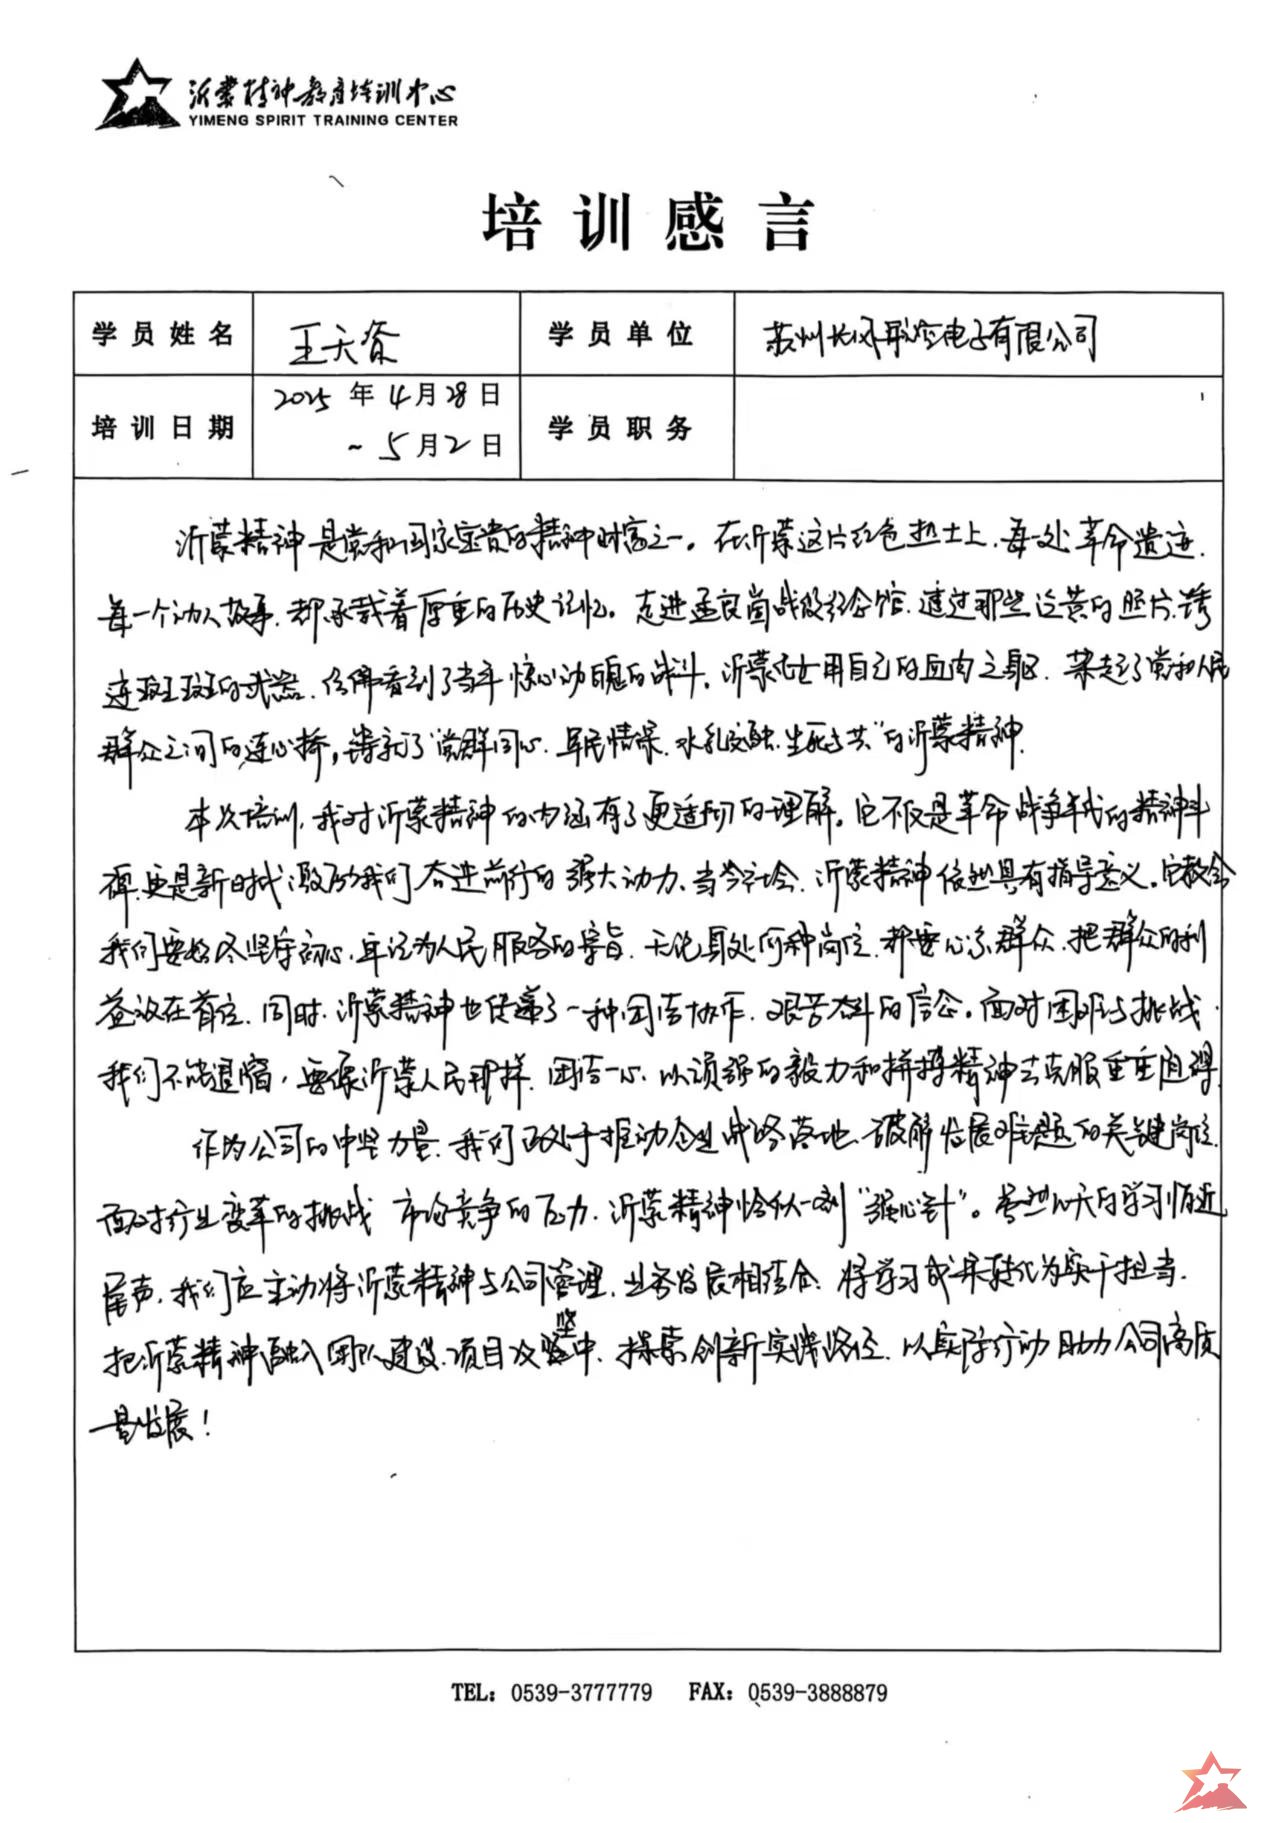 沂蒙精神教育培训中心
YIMENG SPIRIT TRAINING CENTER
培训感言
学员姓名 王天奋 学员单位 苏州长风航空电子有限公司
培训日期 2025年4月28日 学员职务
~5月2日
沂蒙精神是党和国家宝贵的精神财富之一。在沂蒙这片红色热土上,每一处革命遗迹,
每一个动人故事,都承载着厚重的历史记忆。走进孟良崮战役纪念馆,透过那些泛黄的照片,锈
迹斑斑的武器,仿佛看到了当年惊心动魄的战斗。沂蒙儿女用自己的血肉之躯,架起了党和人民
群众之间的连心桥,铸就了"党群同心、军民情深、水乳交融、生死与共"的沂蒙精神。
本次培训,我对沂蒙精神的内涵有了更透彻的理解。它不仅是革命战争年代的精神丰
碑,更是新时代激励我们奋进前行的强大动力。当今社会,沂蒙精神依然具有指导意义。它教会
我们要始终坚守初心,牢记为人民服务的宗旨,无论身处何种岗位,都要心系群众,把群众的利
益放在首位。同时,沂蒙精神也传递了一种团结协作、艰苦奋斗的信念。面对困难与挑战,
我们不能退缩,要像沂蒙人民那样,团结一心,以顽强的毅力和拼搏精神去克服重重阻碍。
作为公司的中坚力量,我们正处于推动企业战略落地、破解发展难题的关键岗位。
面对行业变革的挑战 市场竞争的压力,沂蒙精神恰似一剂"强心针"。虽然几天的学习临近
尾声,我们应主动将沂蒙精神与公司管理、业务发展相结合,将学习成果转化为实干担当,
把沂蒙精神融入团队建设、项目攻坚中,探索创新实践路径,以实际行动助力公司高质
量发展!
TEL: 0539-3777779 FAX: 0539-3888879